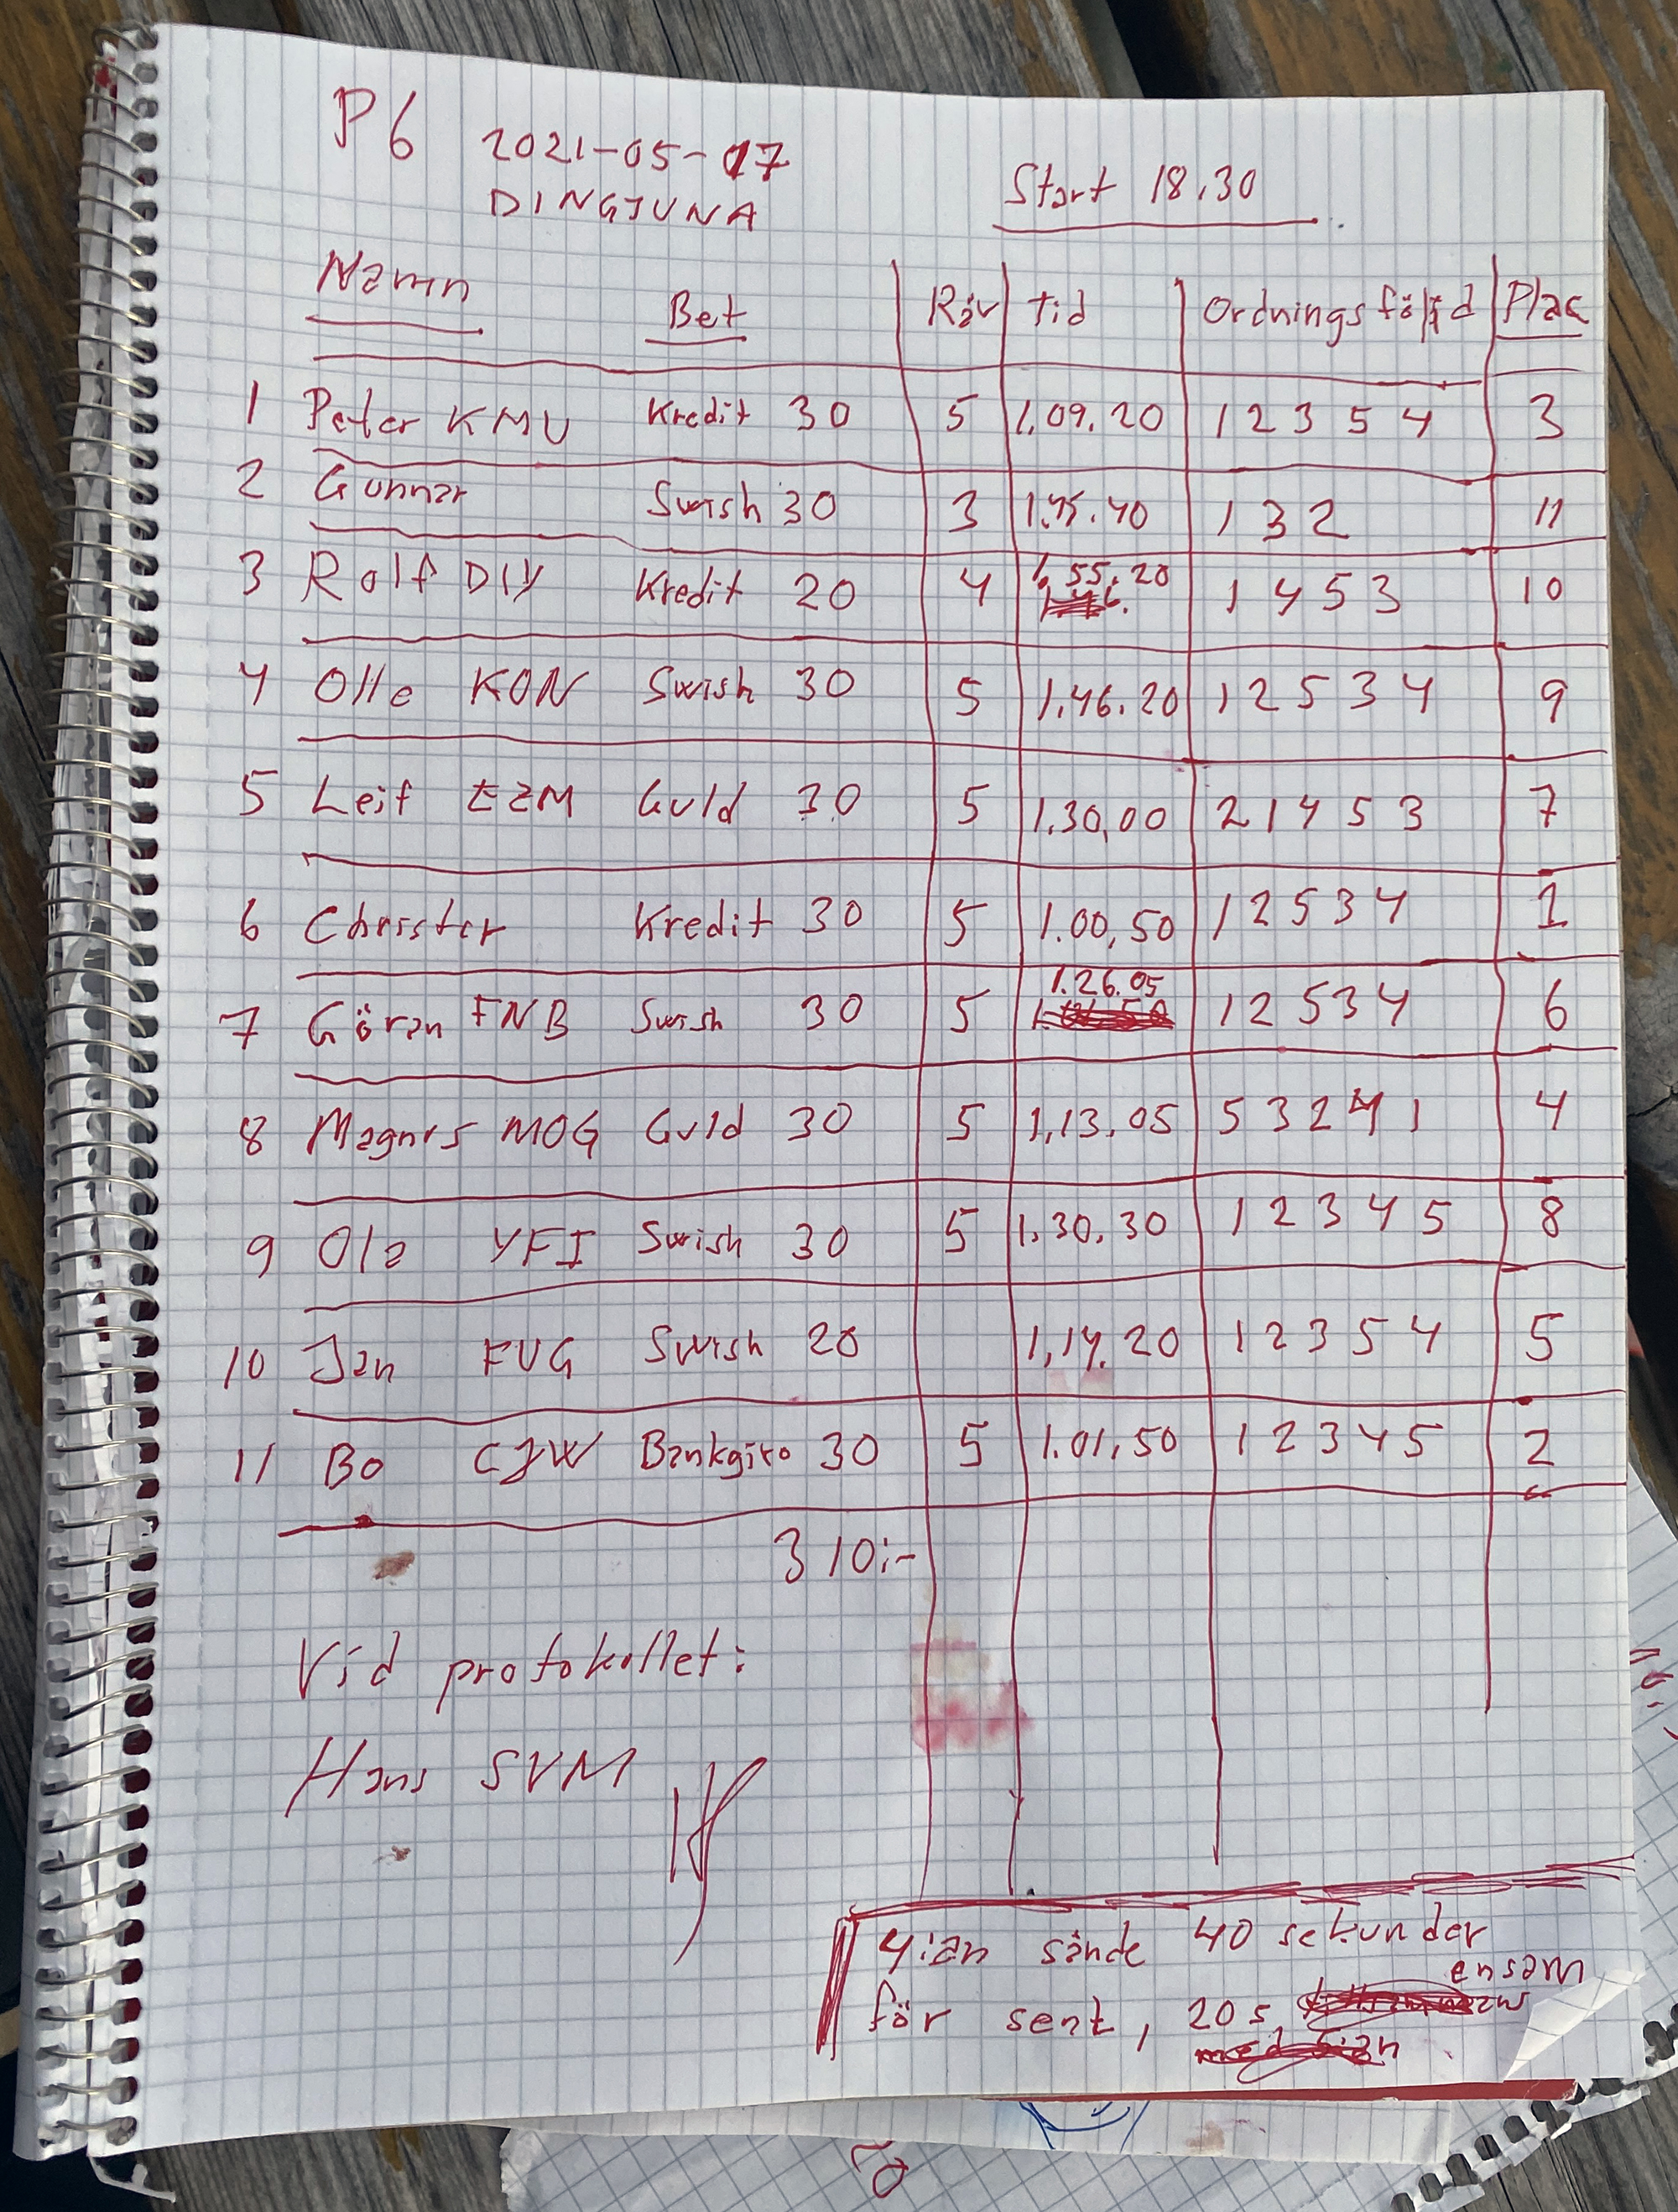 P6 2021-05-17
DINGTUNA
Start 18.30
Namn Bet Räv Tid Ordningsföljd Plac
1 Peter KMU Kredit 30 5 1.09.20 1 2 3 5 4 3
2 Gunnar Swish 30 3 1.45.40 1 3 2 11
3 Rolf DIY Kredit 20 4 1.55.20 1 4 5 3 10
4 Olle KON Swish 30 5 1.46.20 1 2 5 3 4 9
5 Leif EZM Guld 30 5 1.30,00 2 1 4 5 3 7
6 Christer Kredit 30 5 1.00,50 1 2 5 3 4 1
7 Göran FNB Swish 30 5 1.26.05 1 2 5 3 4 6
8 Magnus MOG Guld 30 5 1,13.05 5 3 2 4 1 4
9 Ola YFI Swish 30 5 1.30.30 1 2 3 4 5 8
10 Jan FUG Swish 20 1,14.20 1 2 3 5 4 5
11 Bo CJW Bankgiro 30 5 1.01,50 1 2 3 4 5 2
310:-
Vid protokollet:
Hans SVM
4:ian sände 40 sekunder
för sent, 20 s ensam